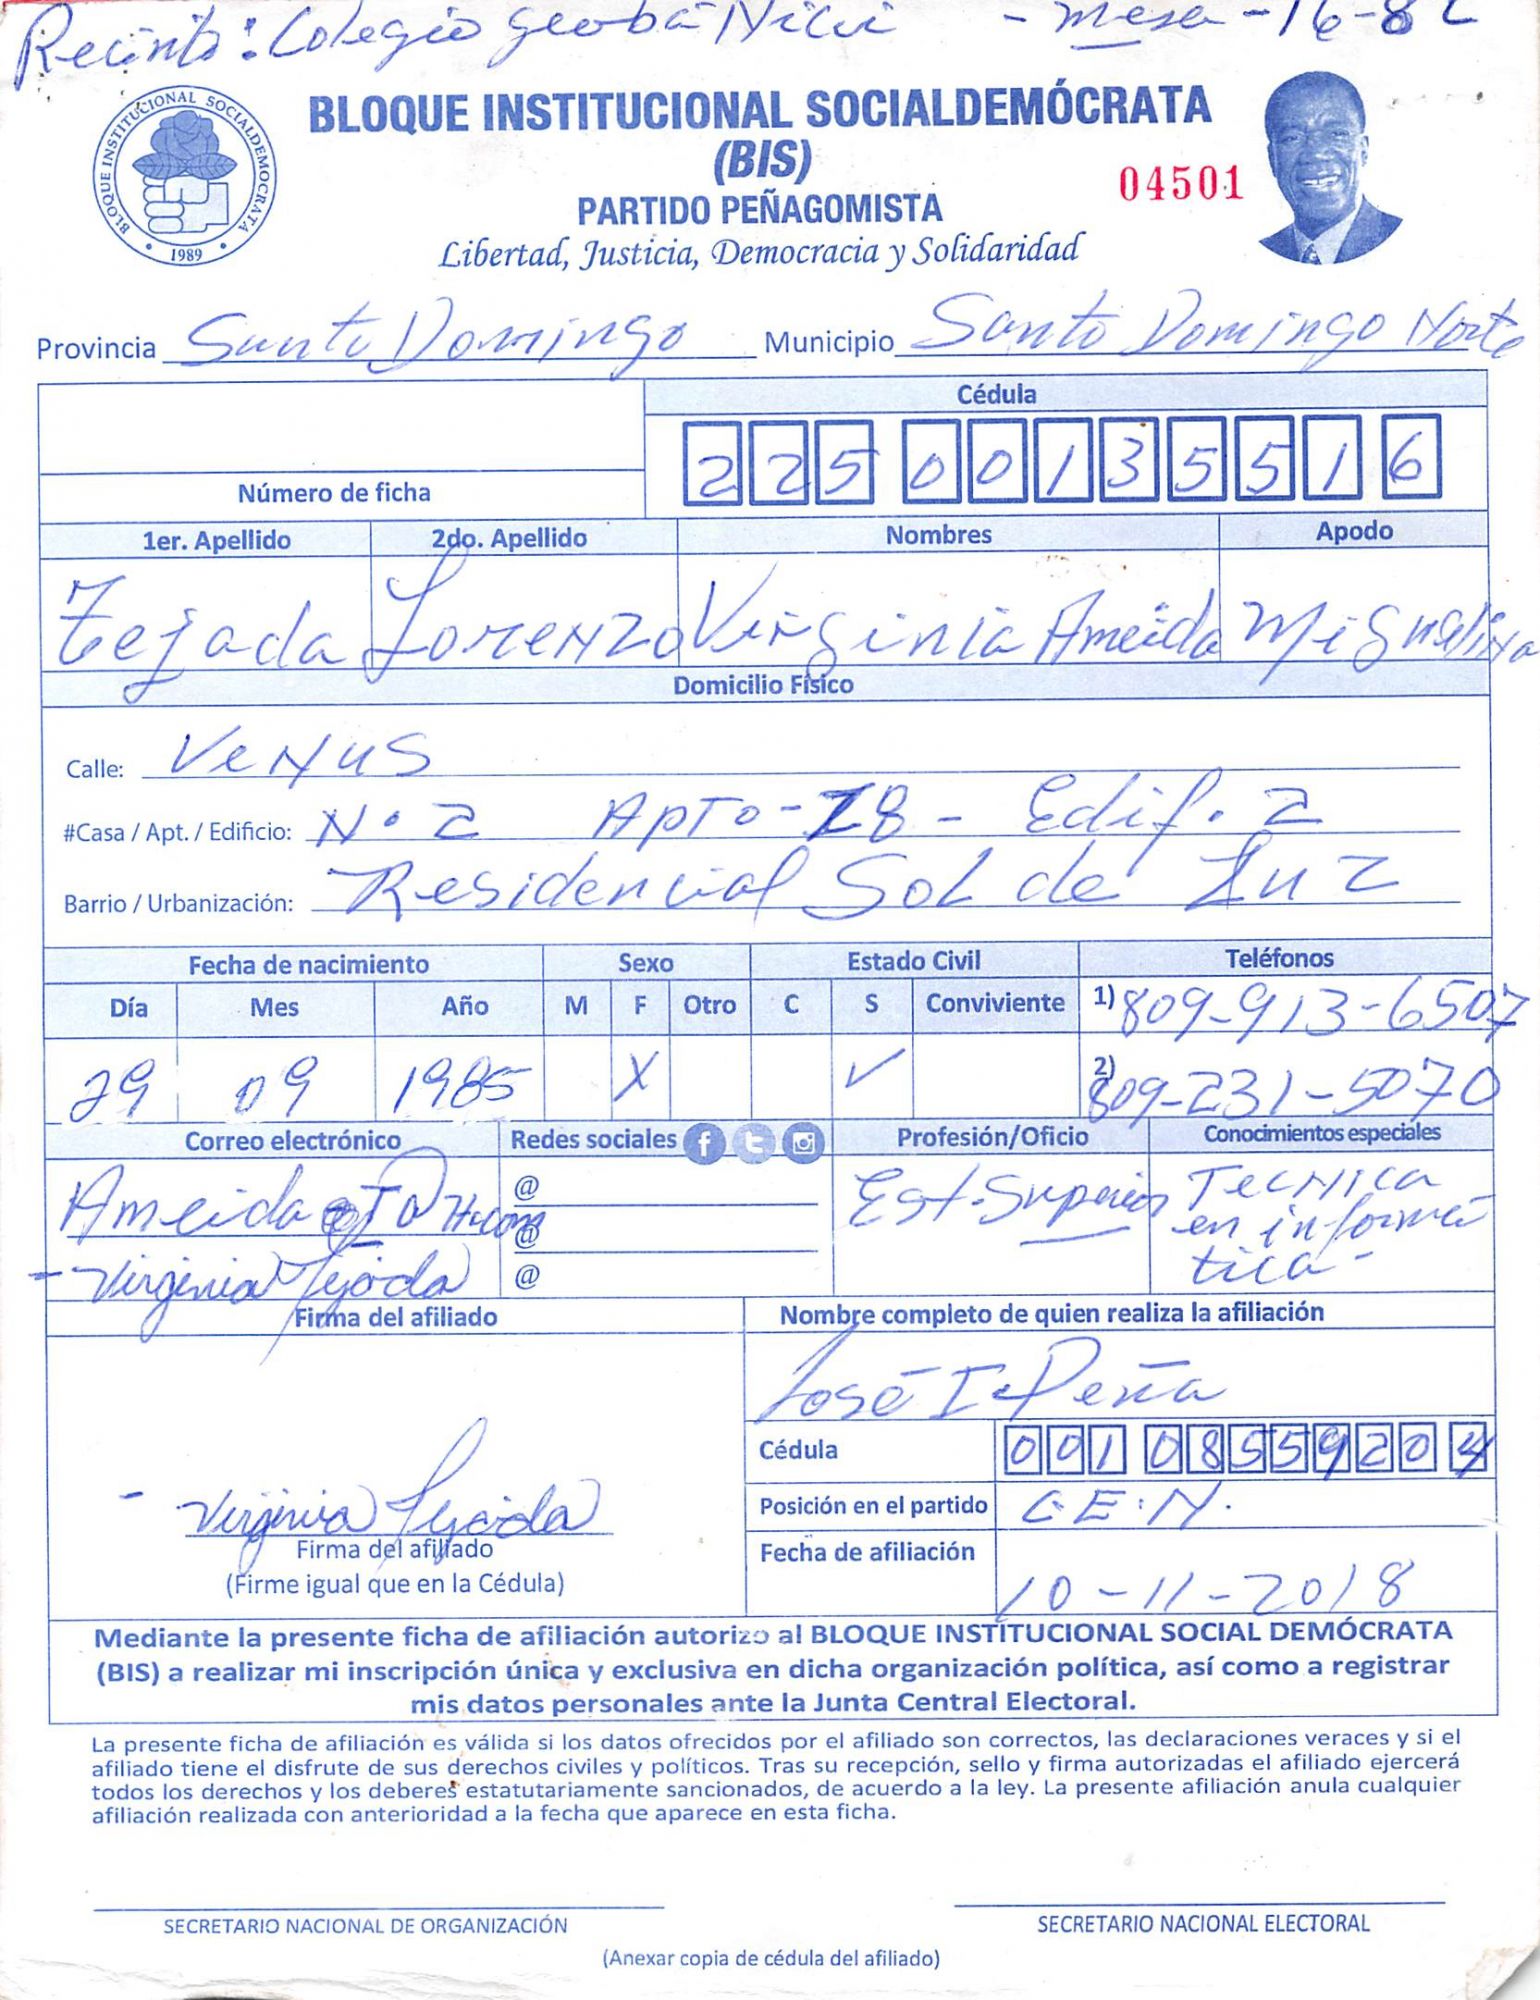 Recinto: Colegio - mesa - 16-8
BLOQUE INSTITUCIONAL SOCIALDEMÓCRATA
(BIS)
04501
PARTIDO PEÑAGOMISTA
Libertad, Justicia, Democracia y Solidaridad
BLOQUE INSTITUCIONAL SOCIALDEMOCRATA
1989
Provincia Santo Domingo Municipio Santo Domingo Norte
Cédula
22500135516
Número de ficha
1er. Apellido 2do. Apellido Nombres Apodo
Tejada Lorenzo Virginia Ameida Miguelina
Domicilio Físico
Calle: Venus
#Casa / Apt. / Edificio: N. 2 Apto - Edif. 2
Barrio / Urbanización: Residencial Sol de Luz
Fecha de nacimiento Sexo Estado Civil Teléfonos
Día Mes Año M F Otro C S Conviviente 1) 809-913-6507
29 09 1985 X ✓ 2) 809-231-5070
Correo electrónico Redes sociales Profesión/Oficio Conocimientos especiales
Ameida @ Est. Superior Tecnica
@ en informá
- Virginia Tejada @ tica -
Firma del afiliado Nombre completo de quien realiza la afiliación
José I. Peña
Cédula 00108559204
Posición en el partido C.E.N.
- Virginia Tejada
Firma del afiliado
(Firme igual que en la Cédula)
Fecha de afiliación 10-11-2018
Mediante la presente ficha de afiliación autorizo al BLOQUE INSTITUCIONAL SOCIAL DEMÓCRATA
(BIS) a realizar mi inscripción única y exclusiva en dicha organización política, así como a registrar
mis datos personales ante la Junta Central Electoral.
La presente ficha de afiliación es válida si los datos ofrecidos por el afiliado son correctos, las declaraciones veraces y si el
afiliado tiene el disfrute de sus derechos civiles y políticos. Tras su recepción, sello y firma autorizadas el afiliado ejercerá
todos los derechos y los deberes estatutariamente sancionados, de acuerdo a la ley. La presente afiliación anula cualquier
afiliación realizada con anterioridad a la fecha que aparece en esta ficha.
SECRETARIO NACIONAL DE ORGANIZACIÓN SECRETARIO NACIONAL ELECTORAL
(Anexar copia de cédula del afiliado)